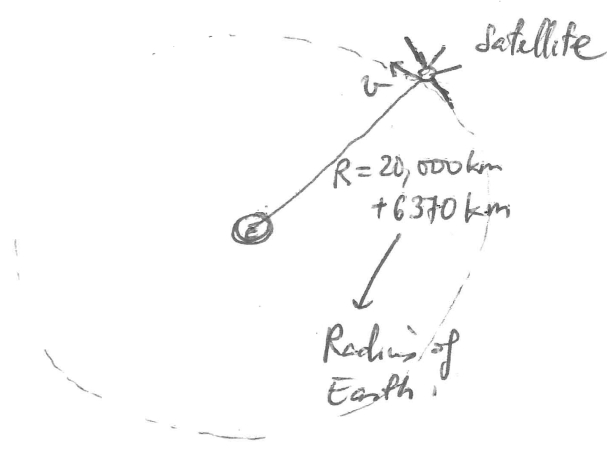 Satellite
v
R = 20,000 km
+6370 km
E
Radius of
Earth.